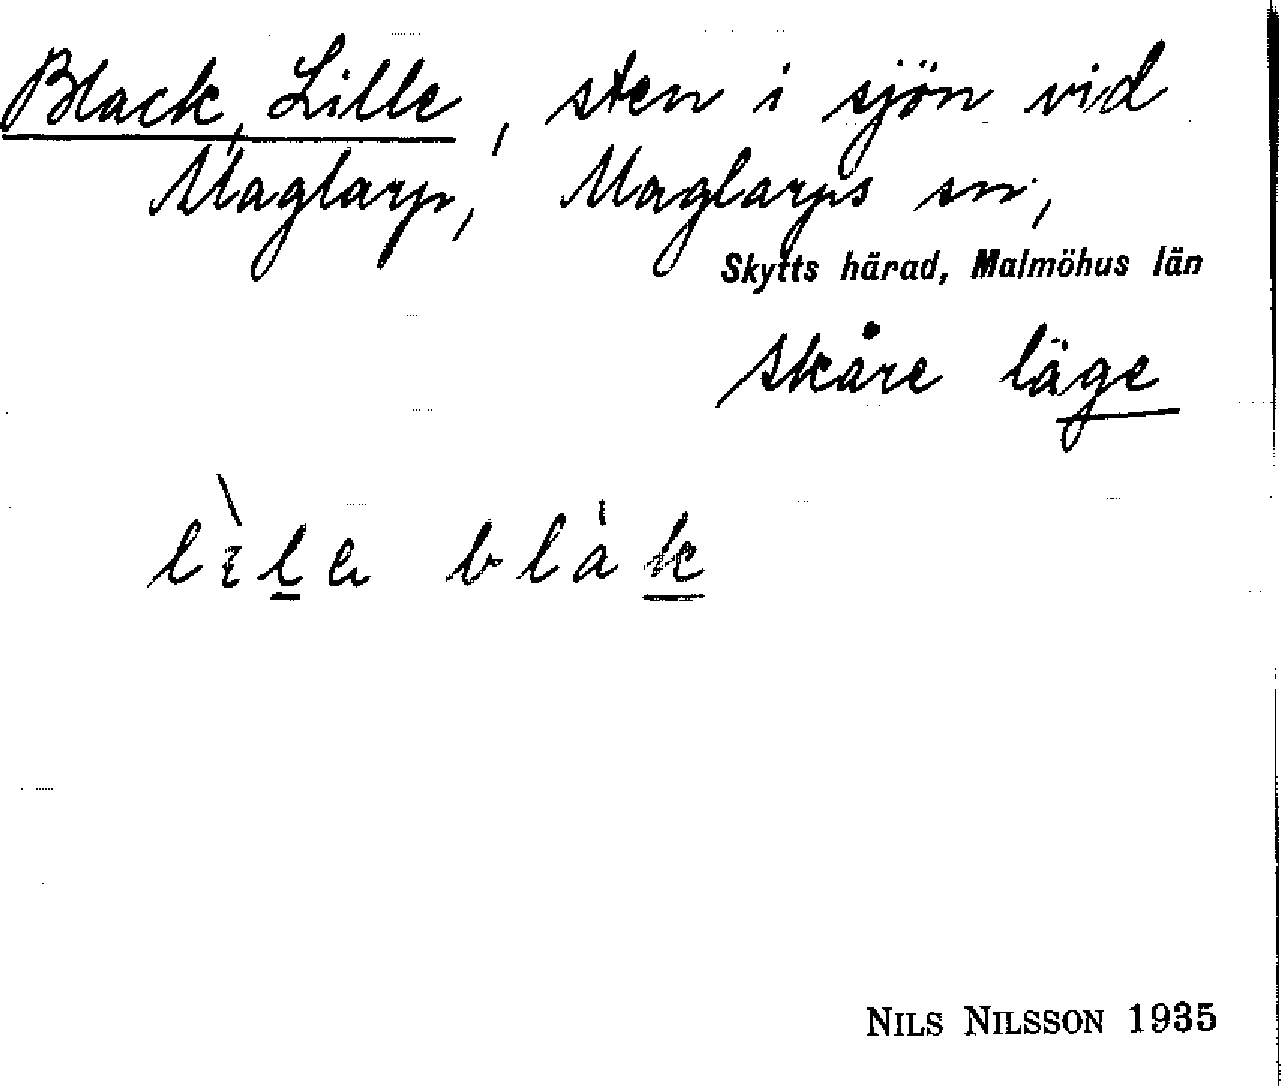 Black, Lille, sten i sjön vid
Maglarp, Maglarps sn,
Skytts härad, Malmöhus län
Skåre läge
lìlɐ blàk
NILS NILSSON 1935